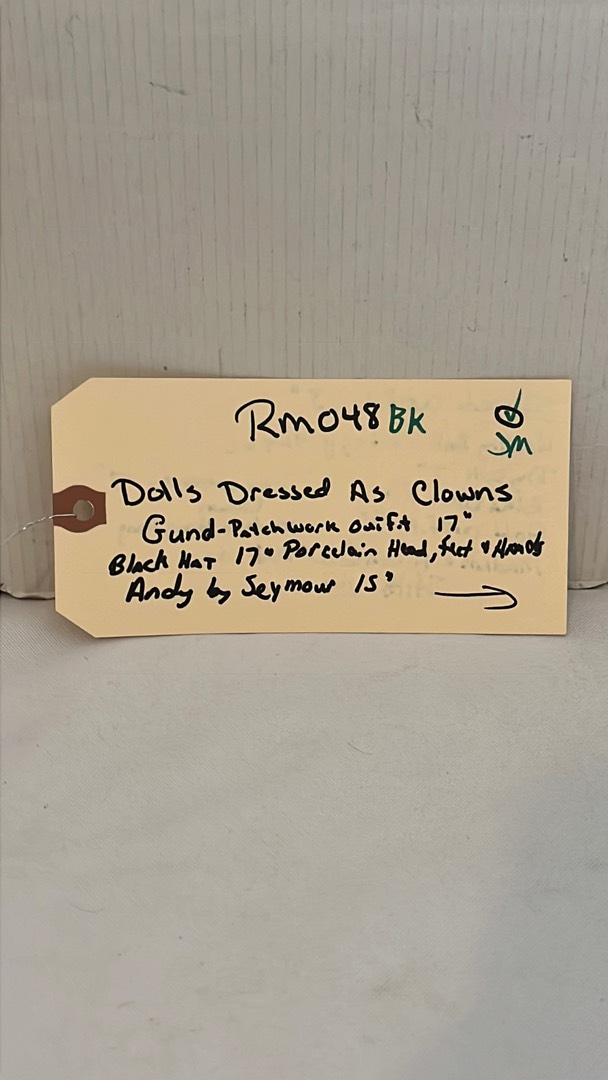 RM048 BK
JM
Dolls Dressed As Clowns
Gund-Patchwork 17"
Black Hat 17" Porcelain Head, feet & Hands
Andy by Seymour 15" →